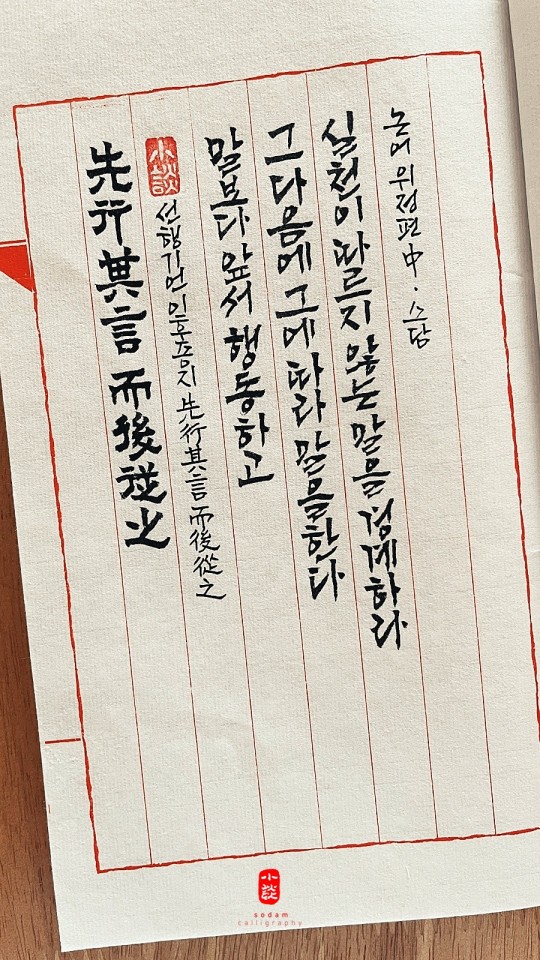 先行其言 而後從之
小談
선행기언 이후종지 先行其言而後從之
말보다 앞서 행동하고
그 다음에 그에 따라 말을 한다
실천이 따르지 않는 말을 경계하라
논어 위정편 中 · 소담
小談
sodam
calligraphy